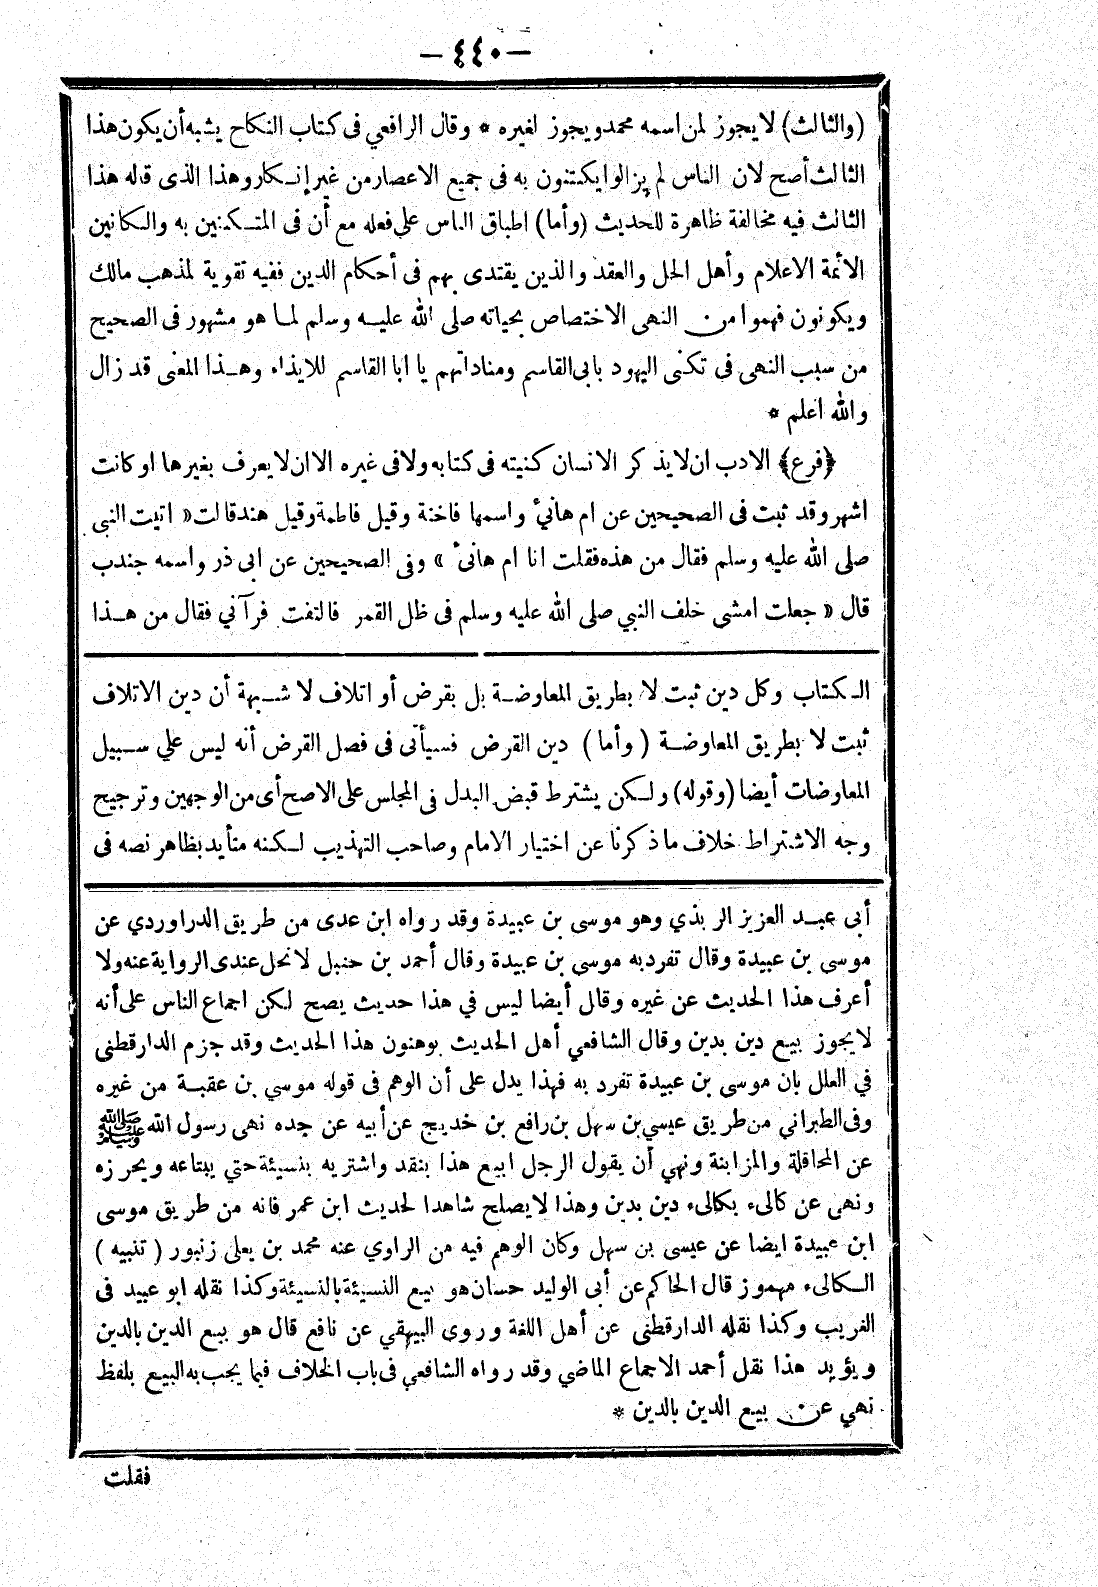 — ٤٤٠ —
(والثالث) لا يجوز لمن اسمه محمد ويجوز لغيره * وقال الرافعي في كتاب النكاح يشبه أن يكون هذا
الثالث أصح لان الناس لم يزالوا يكتنون به في جميع الاعصار من غير إنكار وهذا الذى قاله هذا
الثالث فيه مخالفة ظاهرة للحديث (وأما) اطباق الناس على فعله مع أن فى المتكنين به والكانين
الأئمة الاعلام وأهل الحل والعقد والذين يقتدى بهم فى أحكام الدين ففيه تقوية لمذهب مالك
ويكونون فهموا من النهى الاختصاص بحياته صلى الله عليه وسلم لما هو مشهور فى الصحيح
من سبب النهى فى تكنى اليهود بابى القاسم ومناداتهم يا ابا القاسم للايذاء وهذا المعنى قد زال
والله اعلم *
﴿فرع﴾ الادب ان لا يذكر الانسان كنيته فى كتابه ولا فى غيره الا ان لا يعرف بغيرها او كانت
اشهر وقد ثبت فى الصحيحين عن ام هانئ واسمها فاختة وقيل فاطمة وقيل هند قالت « اتيت النبى
صلى الله عليه وسلم فقال من هذه فقلت انا ام هانئ » وفى الصحيحين عن ابى ذر واسمه جندب
قال « جعلت امشى خلف النبي صلى الله عليه وسلم فى ظل القمر فالتفت فرآني فقال من هذا
الكتاب وكل دين ثبت لا بطريق المعاوضة بل بقرض أو اتلاف لا شبهة أن دين الاتلاف
ثبت لا بطريق المعاوضة ( وأما ) دين القرض فسيأتى فى فصل القرض أنه ليس علي سبيل
المعاوضات أيضا (وقوله) ولكن يشترط قبض البدل فى المجلس على الاصح أى من الوجهين وترجيح
وجه الاشتراط خلاف ما ذكرنا عن اختيار الامام وصاحب التهذيب لكنه متأيد بظاهر نصه فى
أبى عبد العزيز الربذي وهو موسى بن عبيدة وقد رواه ابن عدى من طريق الدراوردي عن
موسى بن عبيدة وقال تفرد به موسى بن عبيدة وقال أحمد بن حنبل لا تحل عندى الرواية عنه ولا
أعرف هذا الحديث عن غيره وقال أيضا ليس في هذا حديث يصح لكن اجماع الناس على أنه
لا يجوز بيع دين بدين وقال الشافعي أهل الحديث يوهنون هذا الحديث وقد جزم الدارقطنى
في العلل بان موسى بن عبيدة تفرد به فهذا يدل على أن الوهم فى قوله موسي بن عقبة من غيره
وفى الطبراني من طريق عيسي بن سهل بن رافع بن خديج عن أبيه عن جده نهى رسول الله ﷺ
عن المحاقلة والمزابنة ونهي أن يقول الرجل ابيع هذا بنقد واشتريه بنسيئة حتي يبتاعه ويحرزه
ونهى عن كالىء بكالىء دين بدين وهذا لا يصلح شاهدا لحديث ابن عمر فانه من طريق موسى
ابن عبيدة ايضا عن عيسى بن سهل وكان الوهم فيه من الراوي عنه محمد بن يعلى زنبور ( تنبيه )
الكالىء مهموز قال الحاكم عن أبى الوليد حسان هو بيع النسيئة بالنسيئة وكذا نقله ابو عبيد فى
الغريب وكذا نقله الدارقطنى عن أهل اللغة وروى البيهقي عن نافع قال هو بيع الدين بالدين
ويؤيد هذا نقل أحمد الاجماع الماضي وقد رواه الشافعي فى باب الخلاف فيما يجب به البيع بلفظ
نهي عن بيع الدين بالدين *
فقلت